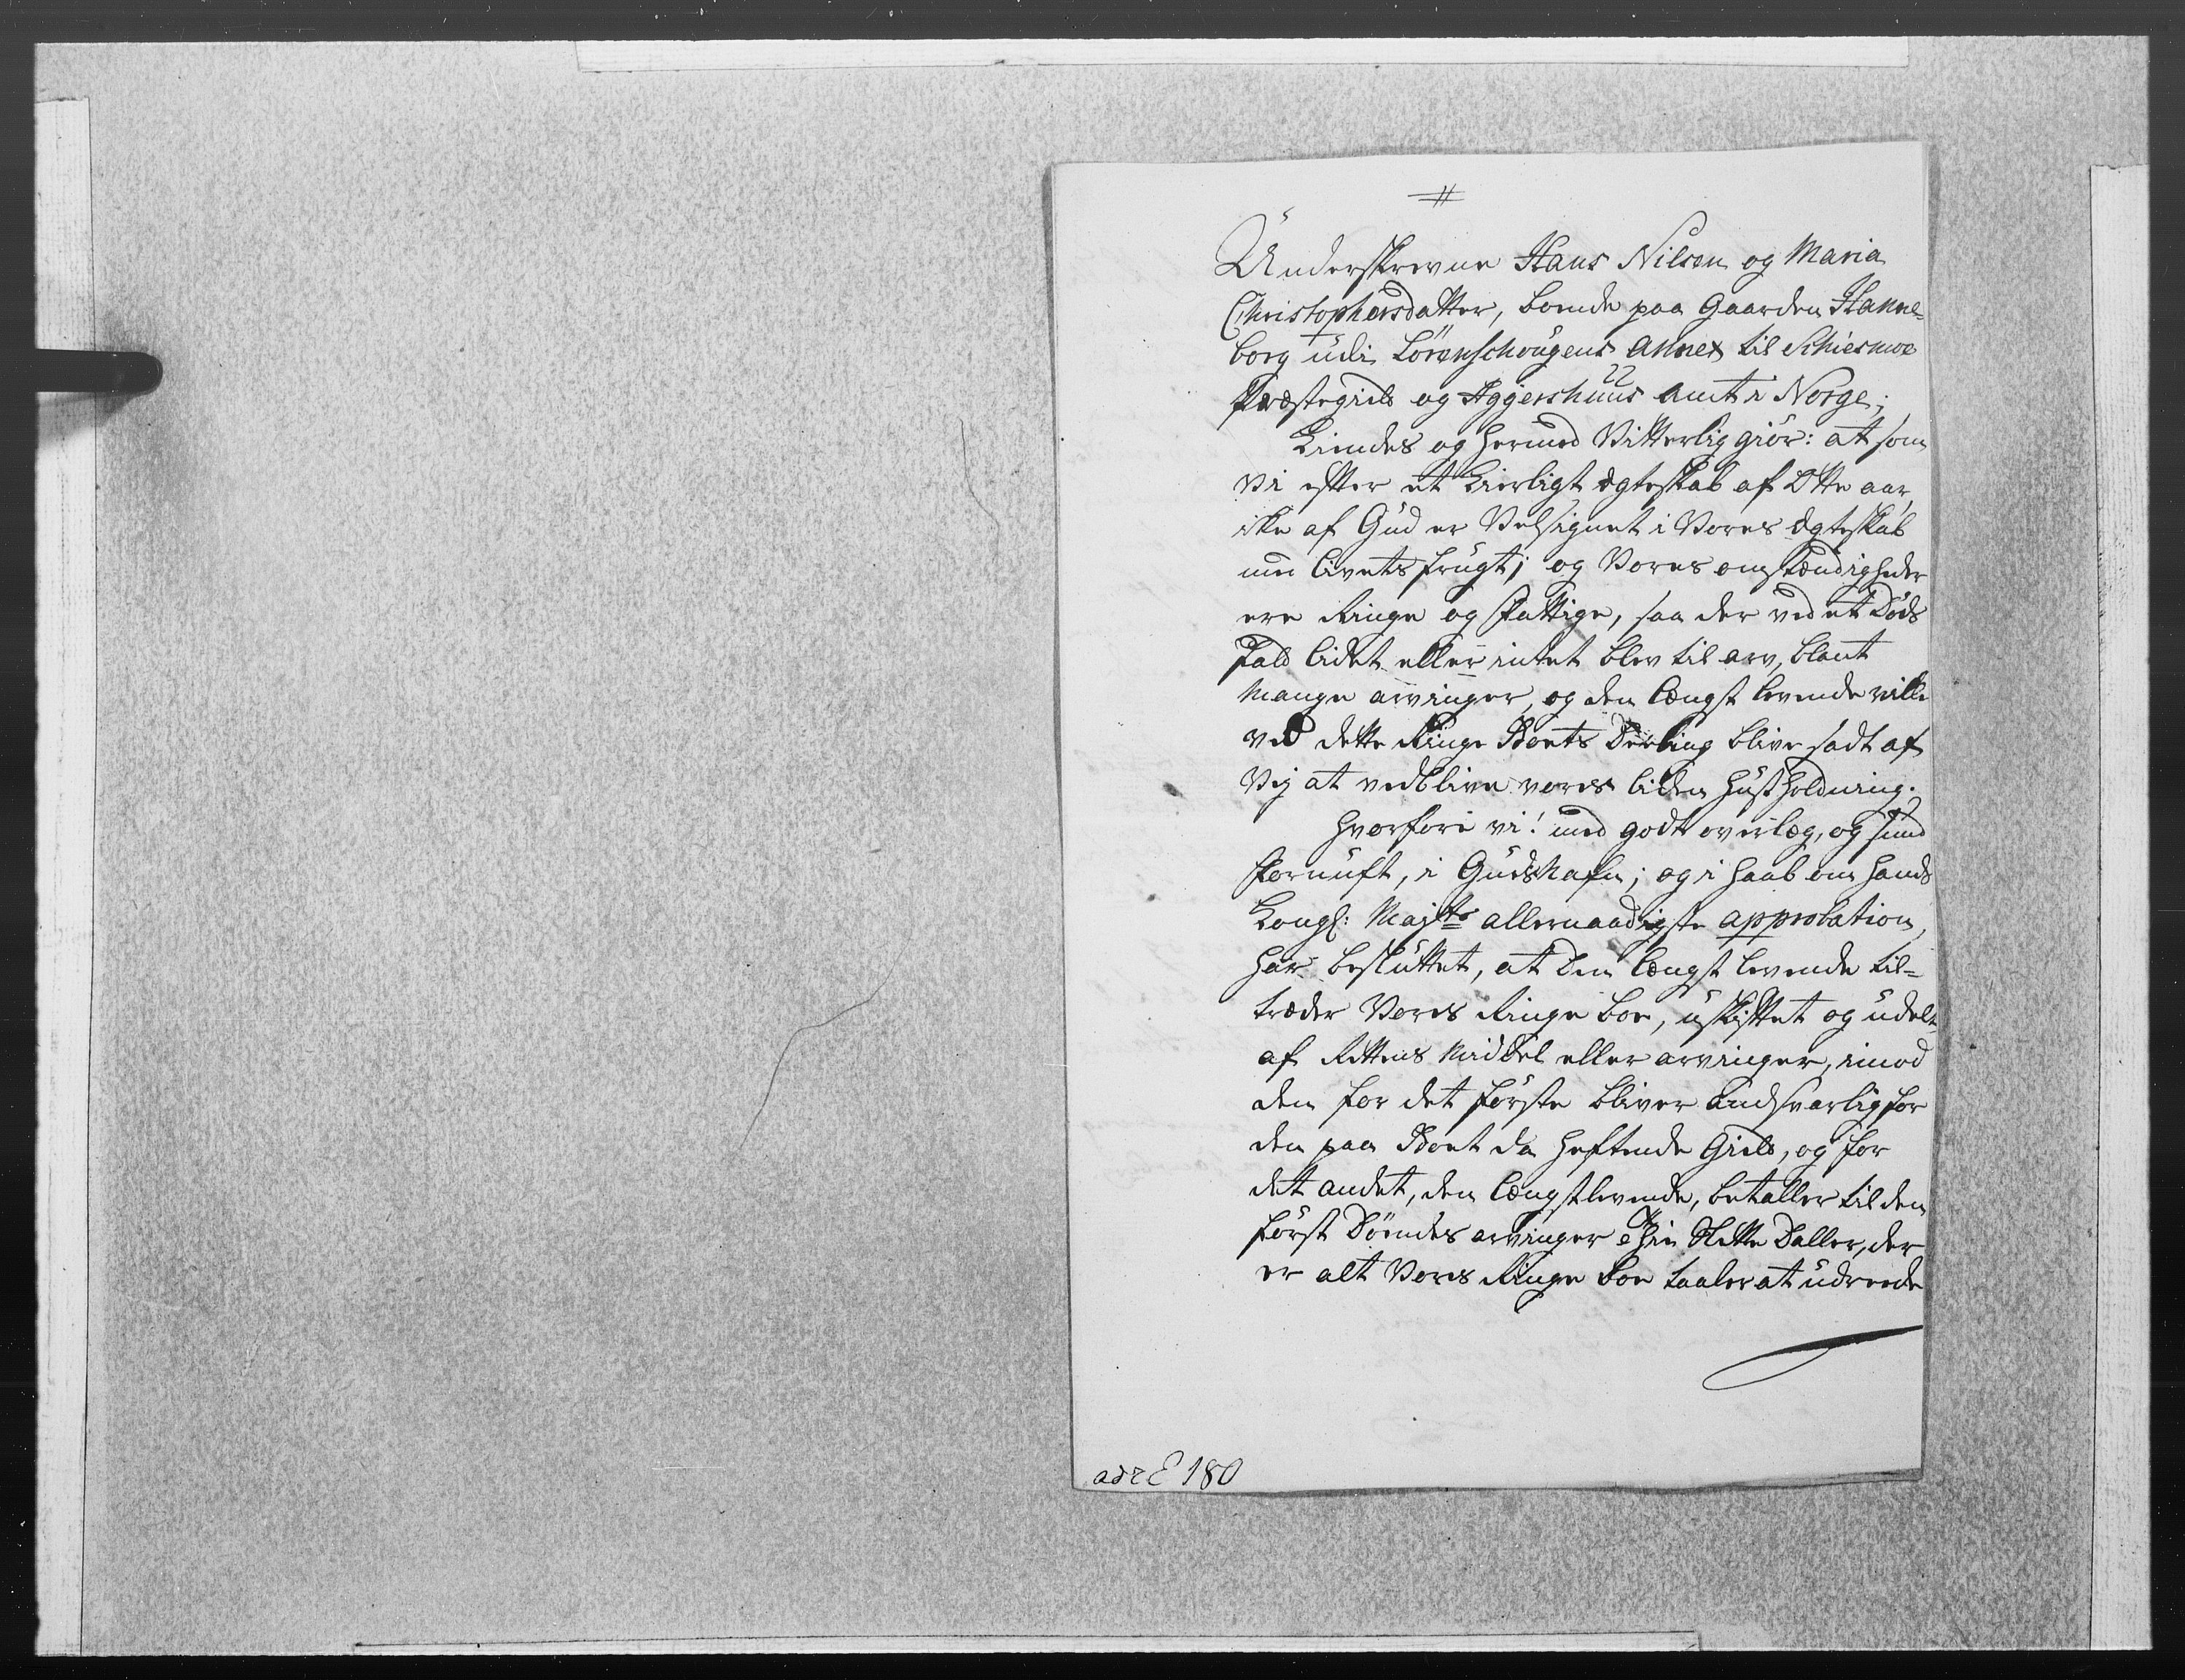 Underskrevne Hans Nilsen og Maria
Christophersdatter, boende paa Gaarden Hanne-
borg udi Lörenschougens Annex til Schiesmoe
Præstegield og Aggershuus Amt i Norge;
Kiendes og hermed Vitterlig giör: at som
Vi efter et Kierligt Ægteskab af Otte aar,
ike af Gud er Velsignet i Vores Ægteskab
med Livets frugt; og Vores omstændigheder
ere Ringe og fattige, saa der ved et Döds
fald lidet eller intet blev til arv, blant
Mange arvinger, og den længst levende ville
ved dette Ringe Boets Deeling blive sadt af
Vej at vedblive vores liden Huusholdning.
Hvorfore vi! med godt overlæg, og sund
fornuft, i Guds Nafn; og i haab om Hands
Kongl: Majts allernaadigste approbation,
har besluttet, at Den længst levende til-
træder Vores Ringe boe, uskiftet og udelt
af Rettens Middel eller arvinger, imod
den for det förste bliver Andsvarlig for
den paa Boet da heftende Gield, og for
det andet, den længstlevende, betaller til den
först Döendes arvinger Slette Daller, der
er alt Vores Ringe boe taaler at udreede
180